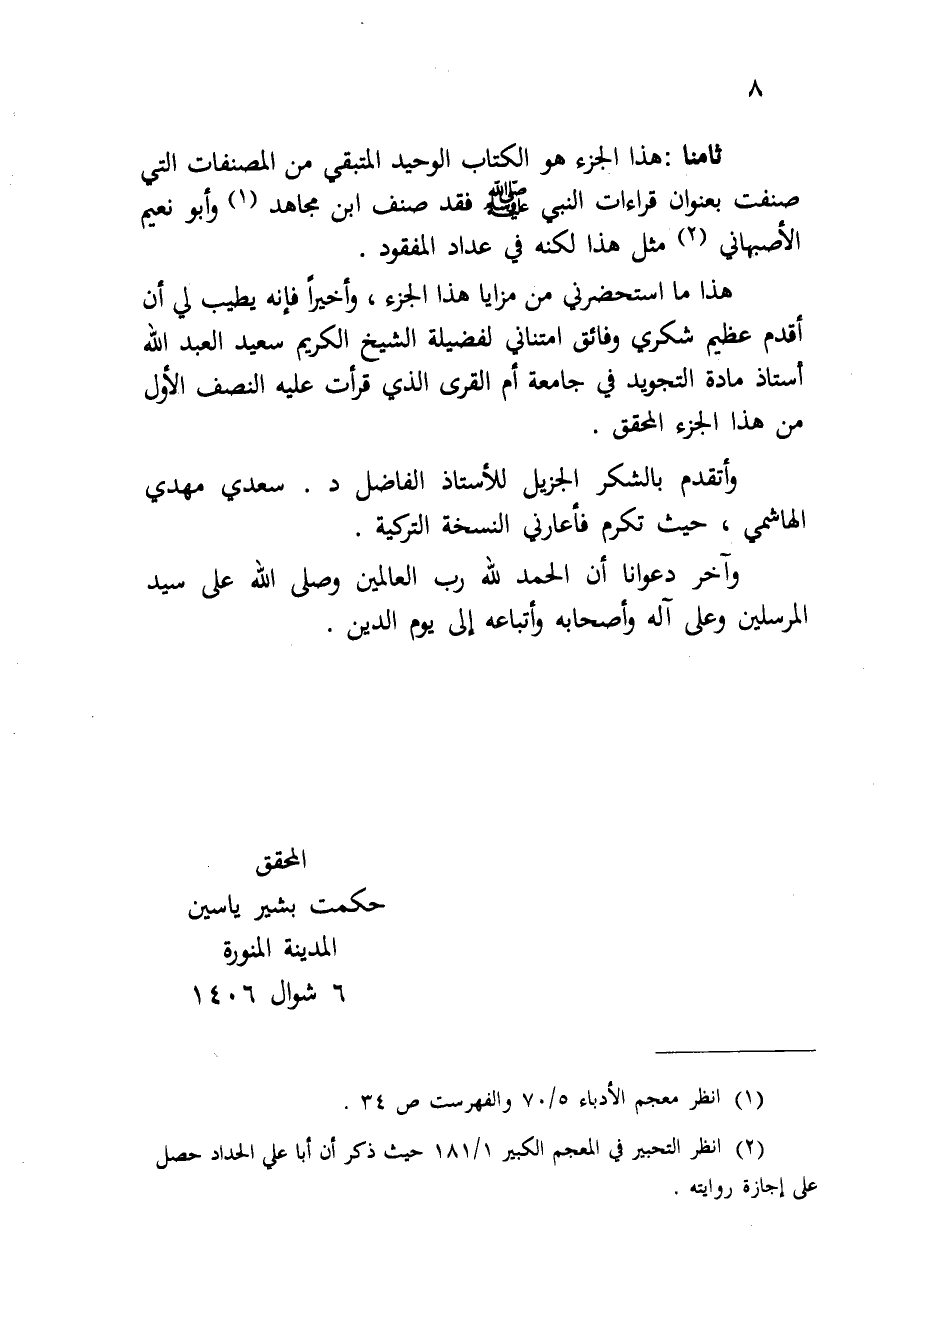 ٨
ثامنا : هذا الجزء هو الكتاب الوحيد المتبقي من المصنفات التي
صنفت بعنوان قراءات النبي ﷺ فقد صنف ابن مجاهد (١) وأبو نعيم
الأصبهاني (٢) مثل هذا لكنه في عداد المفقود .
هذا ما استحضرني من مزايا هذا الجزء ، وأخيراً فإنه يطيب لي أن
أقدم عظيم شكري وفائق امتناني لفضيلة الشيخ الكريم سعيد العبد الله
أستاذ مادة التجويد في جامعة أم القرى الذي قرأت عليه النصف الأول
من هذا الجزء المحقق .
وأتقدم بالشكر الجزيل للأستاذ الفاضل د . سعدي مهدي
الهاشمي ، حيث تكرم فأعارني النسخة التركية .
وآخر دعوانا أن الحمد لله رب العالمين وصلى الله على سيد
المرسلين وعلى آله وأصحابه وأتباعه إلى يوم الدين .
المحقق
حكمت بشير ياسين
المدينة المنورة
٦ شوال ١٤٠٦
(١) انظر معجم الأدباء ٧٠/٥ والفهرست ص ٣٤ .
(٢) انظر التحبير في المعجم الكبير ١٨١/١ حيث ذكر أن أبا علي الحداد حصل
على إجازة روايته .